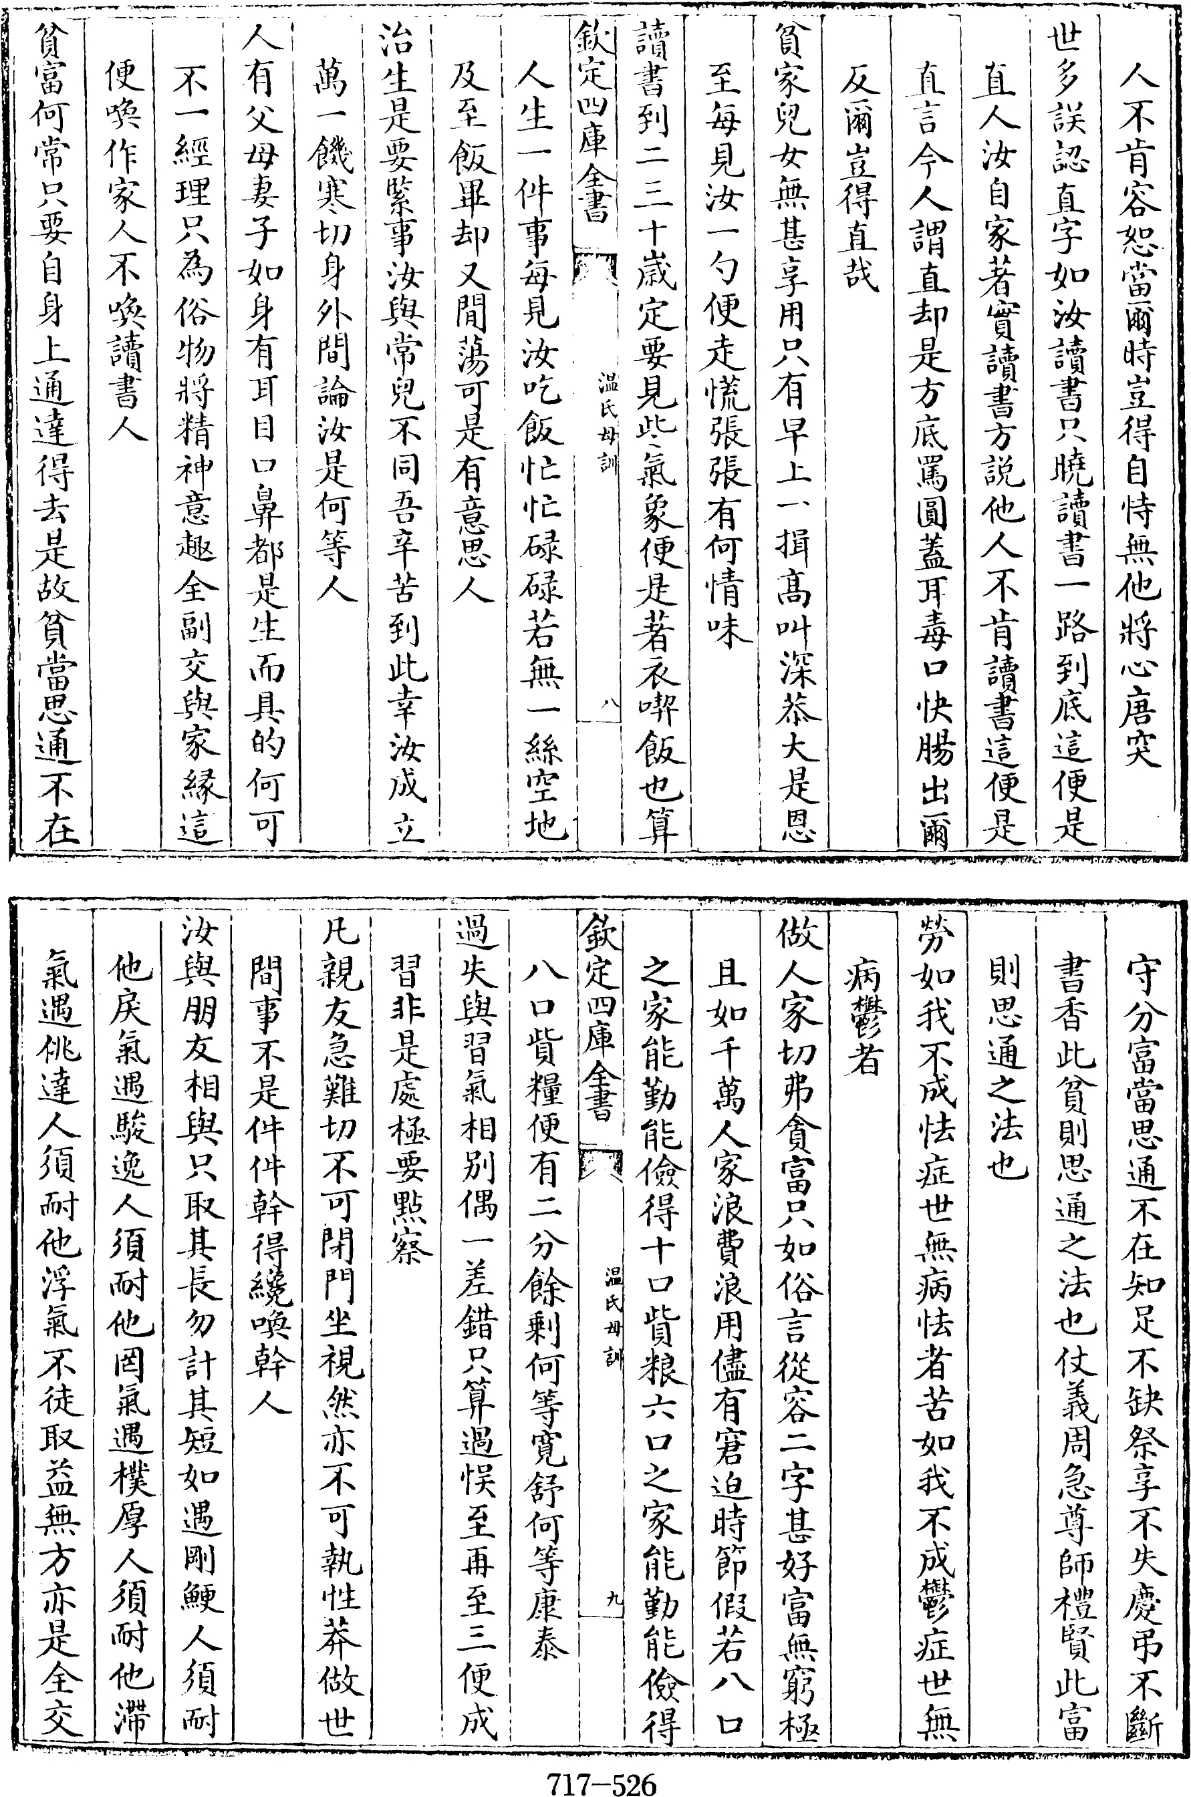 人不肯容恕當爾時豈得自恃無他將心唐突
世多誤認直字如汝讀書只曉讀書一路到底這便是
直人汝自家著實讀書方説他人不肯讀書這便是
直言今人謂直却是方底罵圓蓋耳毒口快腸出爾
反爾豈得直哉
貧家兒女無甚享用只有早上一揖髙叫深恭大是恩
至每見汝一勺便走慌張張有何情味
讀書到二三十歳定要見些氣象便是著衣喫飯也算
欽定四庫全書
温氏母訓
八
人生一件事每見汝吃飯忙忙碌碌若無一絲空地
及至飯畢却又閒蕩可是有意思人
治生是要緊事汝與常兒不同吾辛苦到此幸汝成立
萬一饑寒切身外間論汝是何等人
人有父母妻子如身有耳目口鼻都是生而具的何可
不一經理只為俗物將精神意趣全副交與家縁這
便喚作家人不喚讀書人
貧富何常只要自身上通達得去是故貧當思通不在
守分富當思通不在知足不缺祭享不失慶弔不斷
書香此貧則思通之法也仗義周急尊師禮賢此富
則思通之法也
勞如我不成怯症世無病怯者苦如我不成鬱症世無
病鬱者
做人家切弗貪富只如俗言從容二字甚好富無窮極
且如千萬人家浪費浪用儘有窘迫時節假若八口
之家能勤能儉得十口貲粮六口之家能勤能儉得
欽定四庫全書
温氏母訓
九
八口貲糧便有二分餘剩何等寬舒何等康泰
過失與習氣相别偶一差錯只算過悞至再至三便成
習非是處極要㸃察
凡親友急難切不可閉門坐視然亦不可執性莽做世
間事不是件件幹得纔喚幹人
汝與朋友相與只取其長勿計其短如遇剛鯁人須耐
他戾氣遇駿逸人須耐他罔氣遇樸厚人須耐他滯
氣遇佻達人須耐他浮氣不徒取益無方亦是全交
717-526